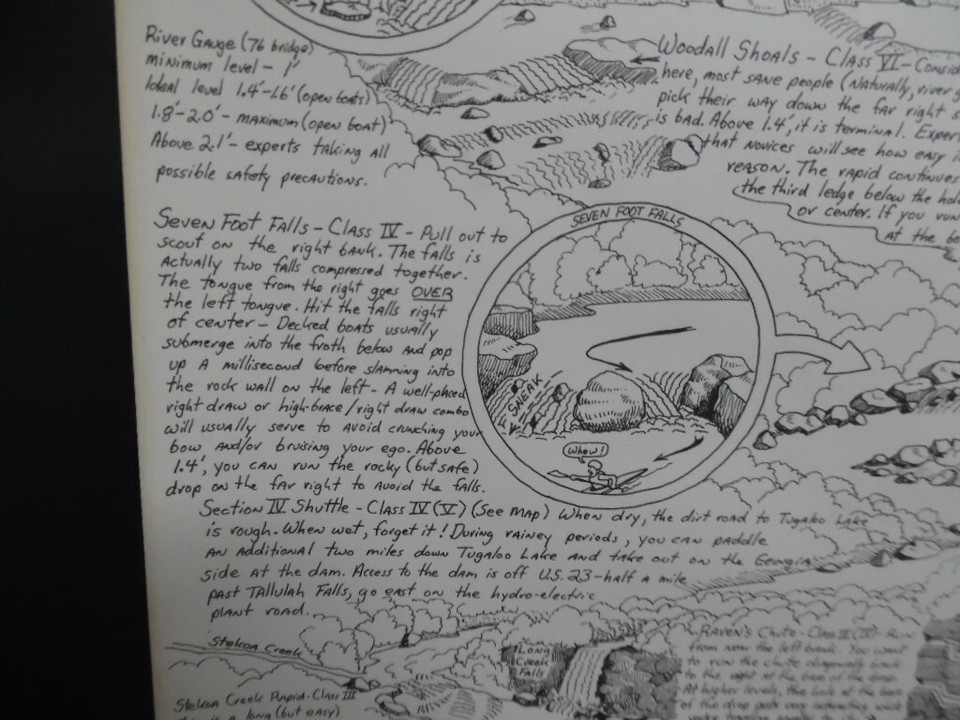 River Gauge (76 bridge)
minimum level - 1'
Ideal level 1.4'-1.6' (open boats)
1.8'-2.0' - maximum (open boat)
Above 2.1' - experts taking all
possible safety precautions.
Woodall Shoals - Class VI - Consid
here, most sane people (Naturally, river g
pick their way down the far right s
is bad. Above 1.4', it is terminal. Exper
that novices will see how easy i
reason. The rapid continues
the third ledge below the hol
or center. If you run
at the bo
Seven Foot Falls - Class IV - Pull out to
scout on the right bank. The falls is
actually two falls compressed together.
The tongue from the right goes OVER
the left tongue. Hit the falls right
of center - Decked boats usually
submerge into the froth below and pop
up a millisecond before slamming into
the rock wall on the left - A well-placed
right draw or high-brace/right draw combo
will usually serve to avoid crunching your
bow and/or bruising your ego. Above
1.4', you can run the rocky (but safe)
drop on the far right to avoid the falls.
SEVEN FOOT FALLS
SNEAK
Whew!
Section IV Shuttle - Class IV (V) (See Map) When dry, the dirt road to Tugaloo Lake
is rough. When wet, forget it! During rainey periods, you can paddle
an additional two miles down Tugaloo Lake and take out on the Georgia
side at the dam. Access to the dam is off U.S. 23 - half a mile
past Tallulah Falls, go east on the hydro-electric
plant road.
Stekoa Creek
Stekoa Creek Rapid - Class III
a long (but easy)
Long
Creek
Falls
Raven's Chute - Class III (IV) - Run
from near the left bank. You want
to run the chute diagonally back
to the right at the base of the drop.
At higher levels, the hole at the base
of the drop gets very